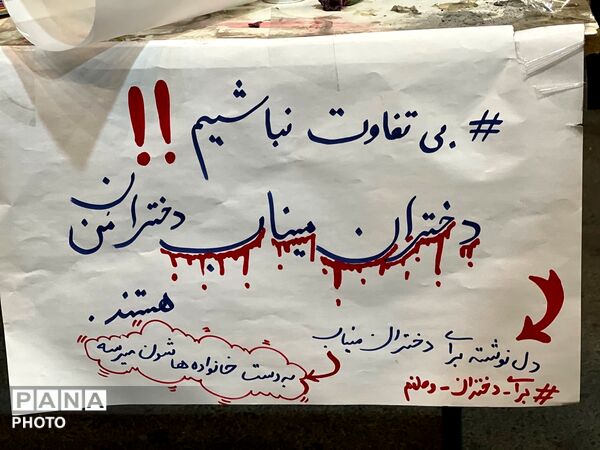 # بی تفاوت نباشیم !!
دختران میناب دختران من
هستند.
دل نوشته برای دختران میناب
به دست خانواده ها شون میرسه
#برای-دختران-وطنم
PANA
PHOTO